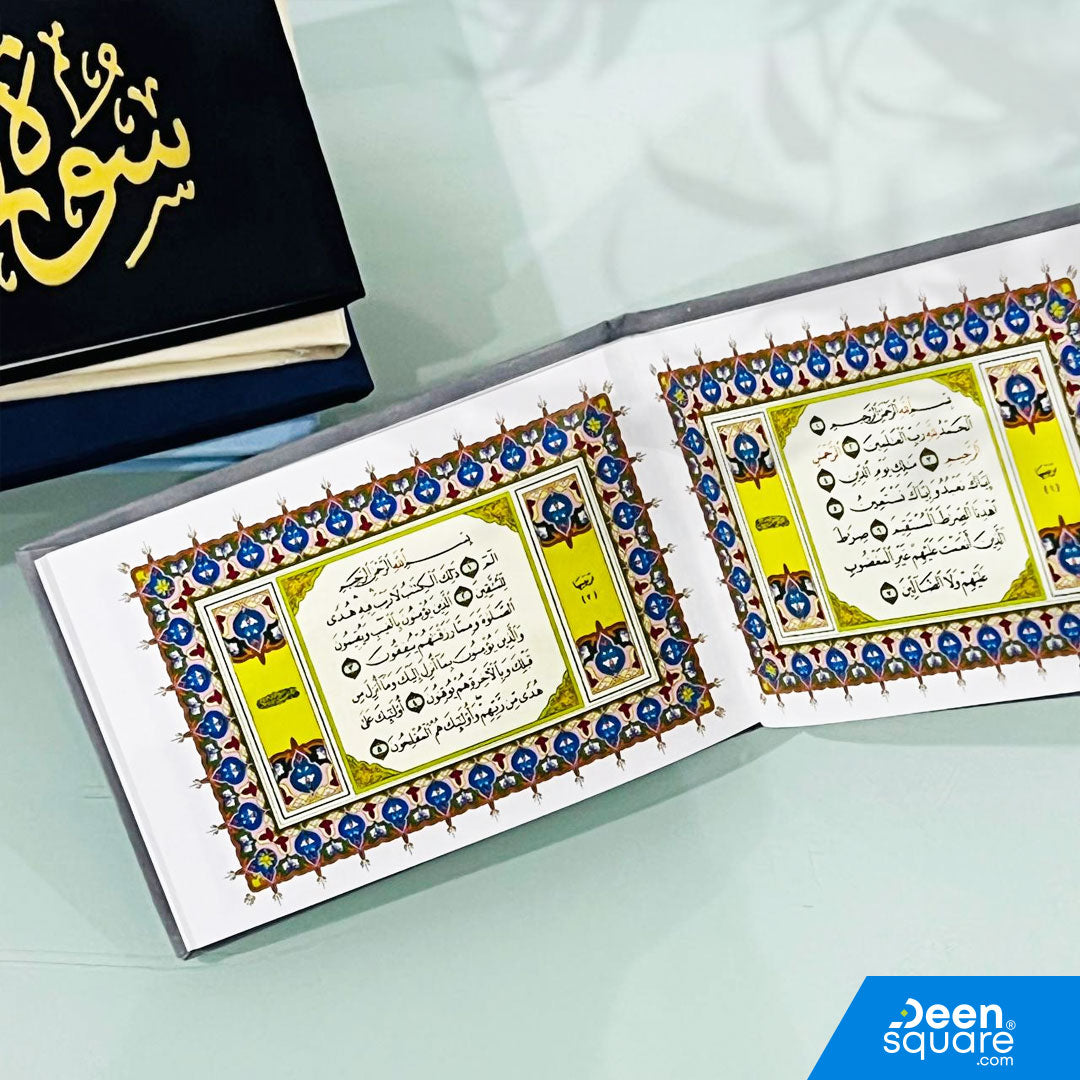 سُورَة
بِسْمِ ٱللَّهِ ٱلرَّحْمَٰنِ ٱلرَّحِيمِ ١
ٱلْحَمْدُ لِلَّهِ رَبِّ ٱلْعَٰلَمِينَ ٢ ٱلرَّحْمَٰنِ
ٱلرَّحِيمِ ٣ مَٰلِكِ يَوْمِ ٱلدِّينِ ٤
إِيَّاكَ نَعْبُدُ وَإِيَّاكَ نَسْتَعِينُ ٥
ٱهْدِنَا ٱلصِّرَٰطَ ٱلْمُسْتَقِيمَ ٦ صِرَٰطَ
ٱلَّذِينَ أَنْعَمْتَ عَلَيْهِمْ غَيْرِ ٱلْمَغْضُوبِ
عَلَيْهِمْ وَلَا ٱلضَّآلِّينَ ٧
ترتيبها
(١)
بِسْمِ ٱللَّهِ ٱلرَّحْمَٰنِ ٱلرَّحِيمِ
الٓمٓ ١ ذَٰلِكَ ٱلْكِتَٰبُ لَا رَيْبَ فِيهِ هُدًى
لِّلْمُتَّقِينَ ٢ ٱلَّذِينَ يُؤْمِنُونَ بِٱلْغَيْبِ وَيُقِيمُونَ
ٱلصَّلَوٰةَ وَمِمَّا رَزَقْنَٰهُمْ يُنفِقُونَ ٣
وَٱلَّذِينَ يُؤْمِنُونَ بِمَآ أُنزِلَ إِلَيْكَ وَمَآ أُنزِلَ مِن
قَبْلِكَ وَبِٱلْءَاخِرَةِ هُمْ يُوقِنُونَ ٤ أُو۟لَٰٓئِكَ عَلَىٰ
هُدًى مِّن رَّبِّهِمْ وَأُو۟لَٰٓئِكَ هُمُ ٱلْمُفْلِحُونَ ٥
ترتيبها
(٢)
Deen
square®
.com